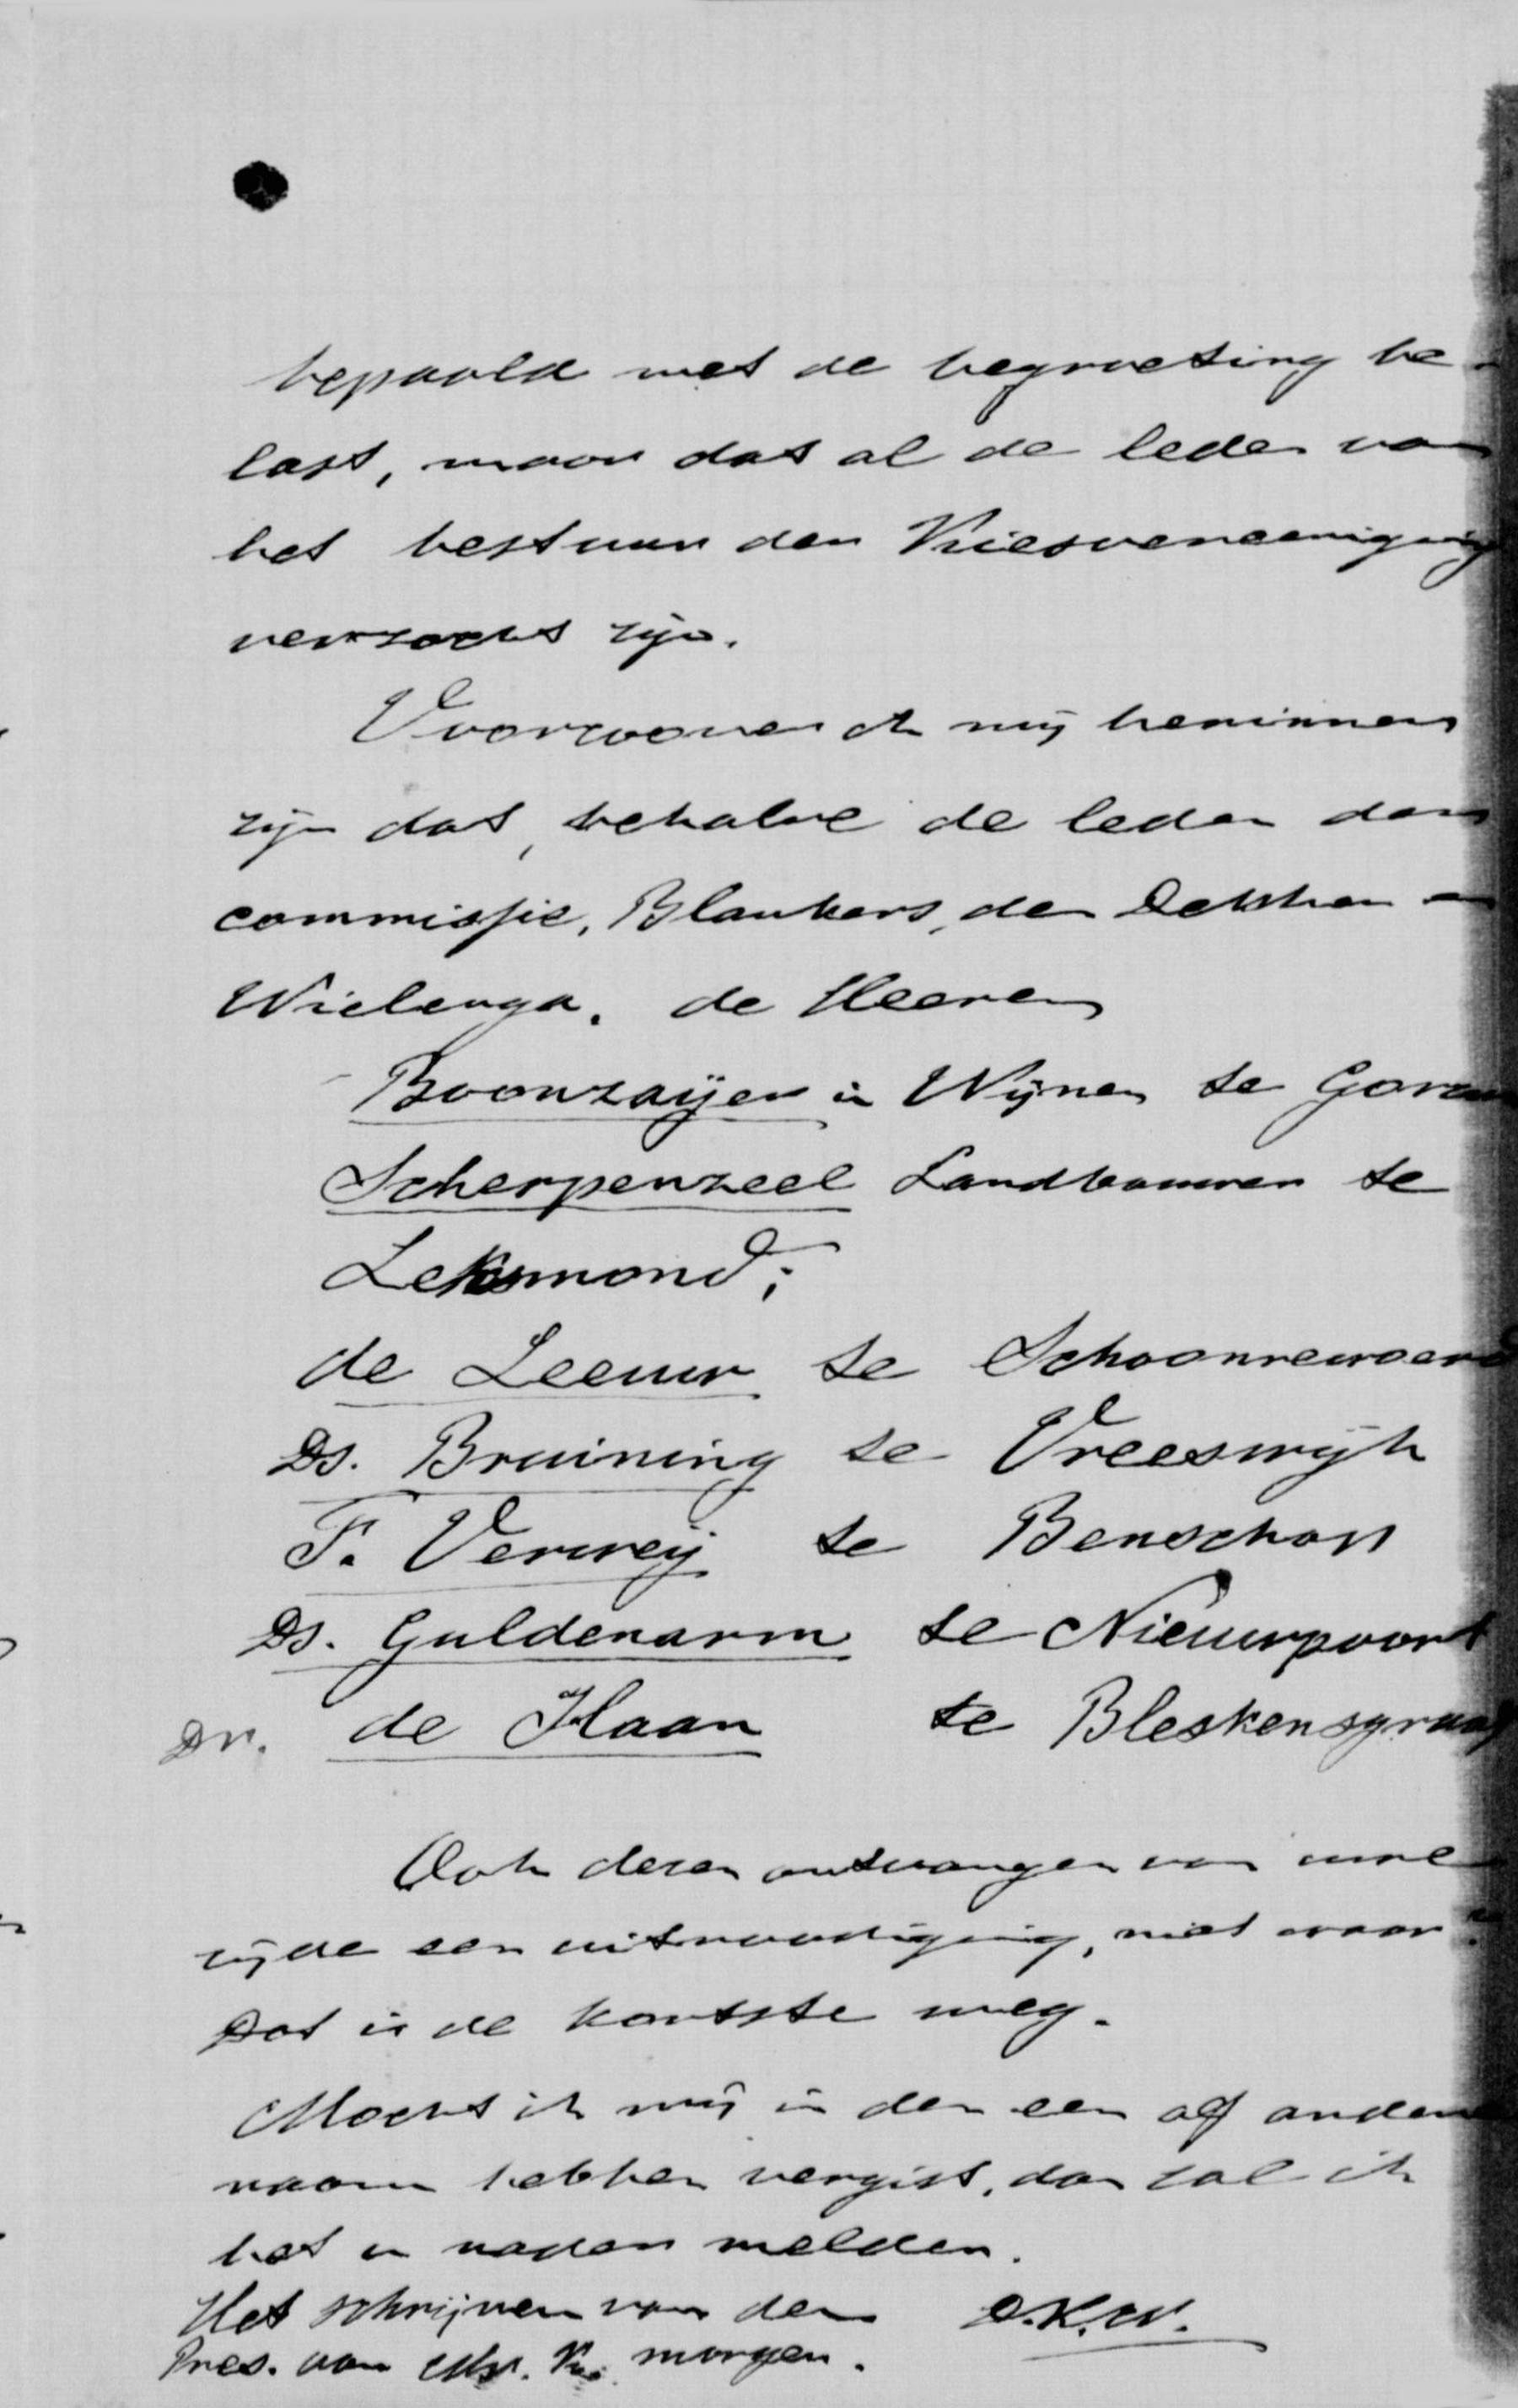 bepaald met de begroeting be-
last, maar dat al de leden van
het bestuur der Kiesvereeniging
verzocht zijn.
Voorzoover ik mij herinner
zijn dat, behalve de leden der
commissie, Blankers, den Dekker en
Wielenga, de Heeren
Boonzaijer in Wijnen te Gorcum
Scherpenzeel Landbouwer te
Leksmond;
de Leeuw te Schoonrewoerd
Ds. Bruining te Vreeswijk
F. Verweij te Benschop
Ds. Guldenarm te Nieuwpoort
Dr. de Haan te Bleskensgraaf
Ook dezen ontvangen van uwe
zijde een uitnoodiging, niet waar?
Dat is de kortste weg.
Mocht ik mij in den een of anderen
naam hebben vergist, dan zal ik
het u nader melden.
Het schrijven van den D.K.W.
Pres. aan Mr. morgen.